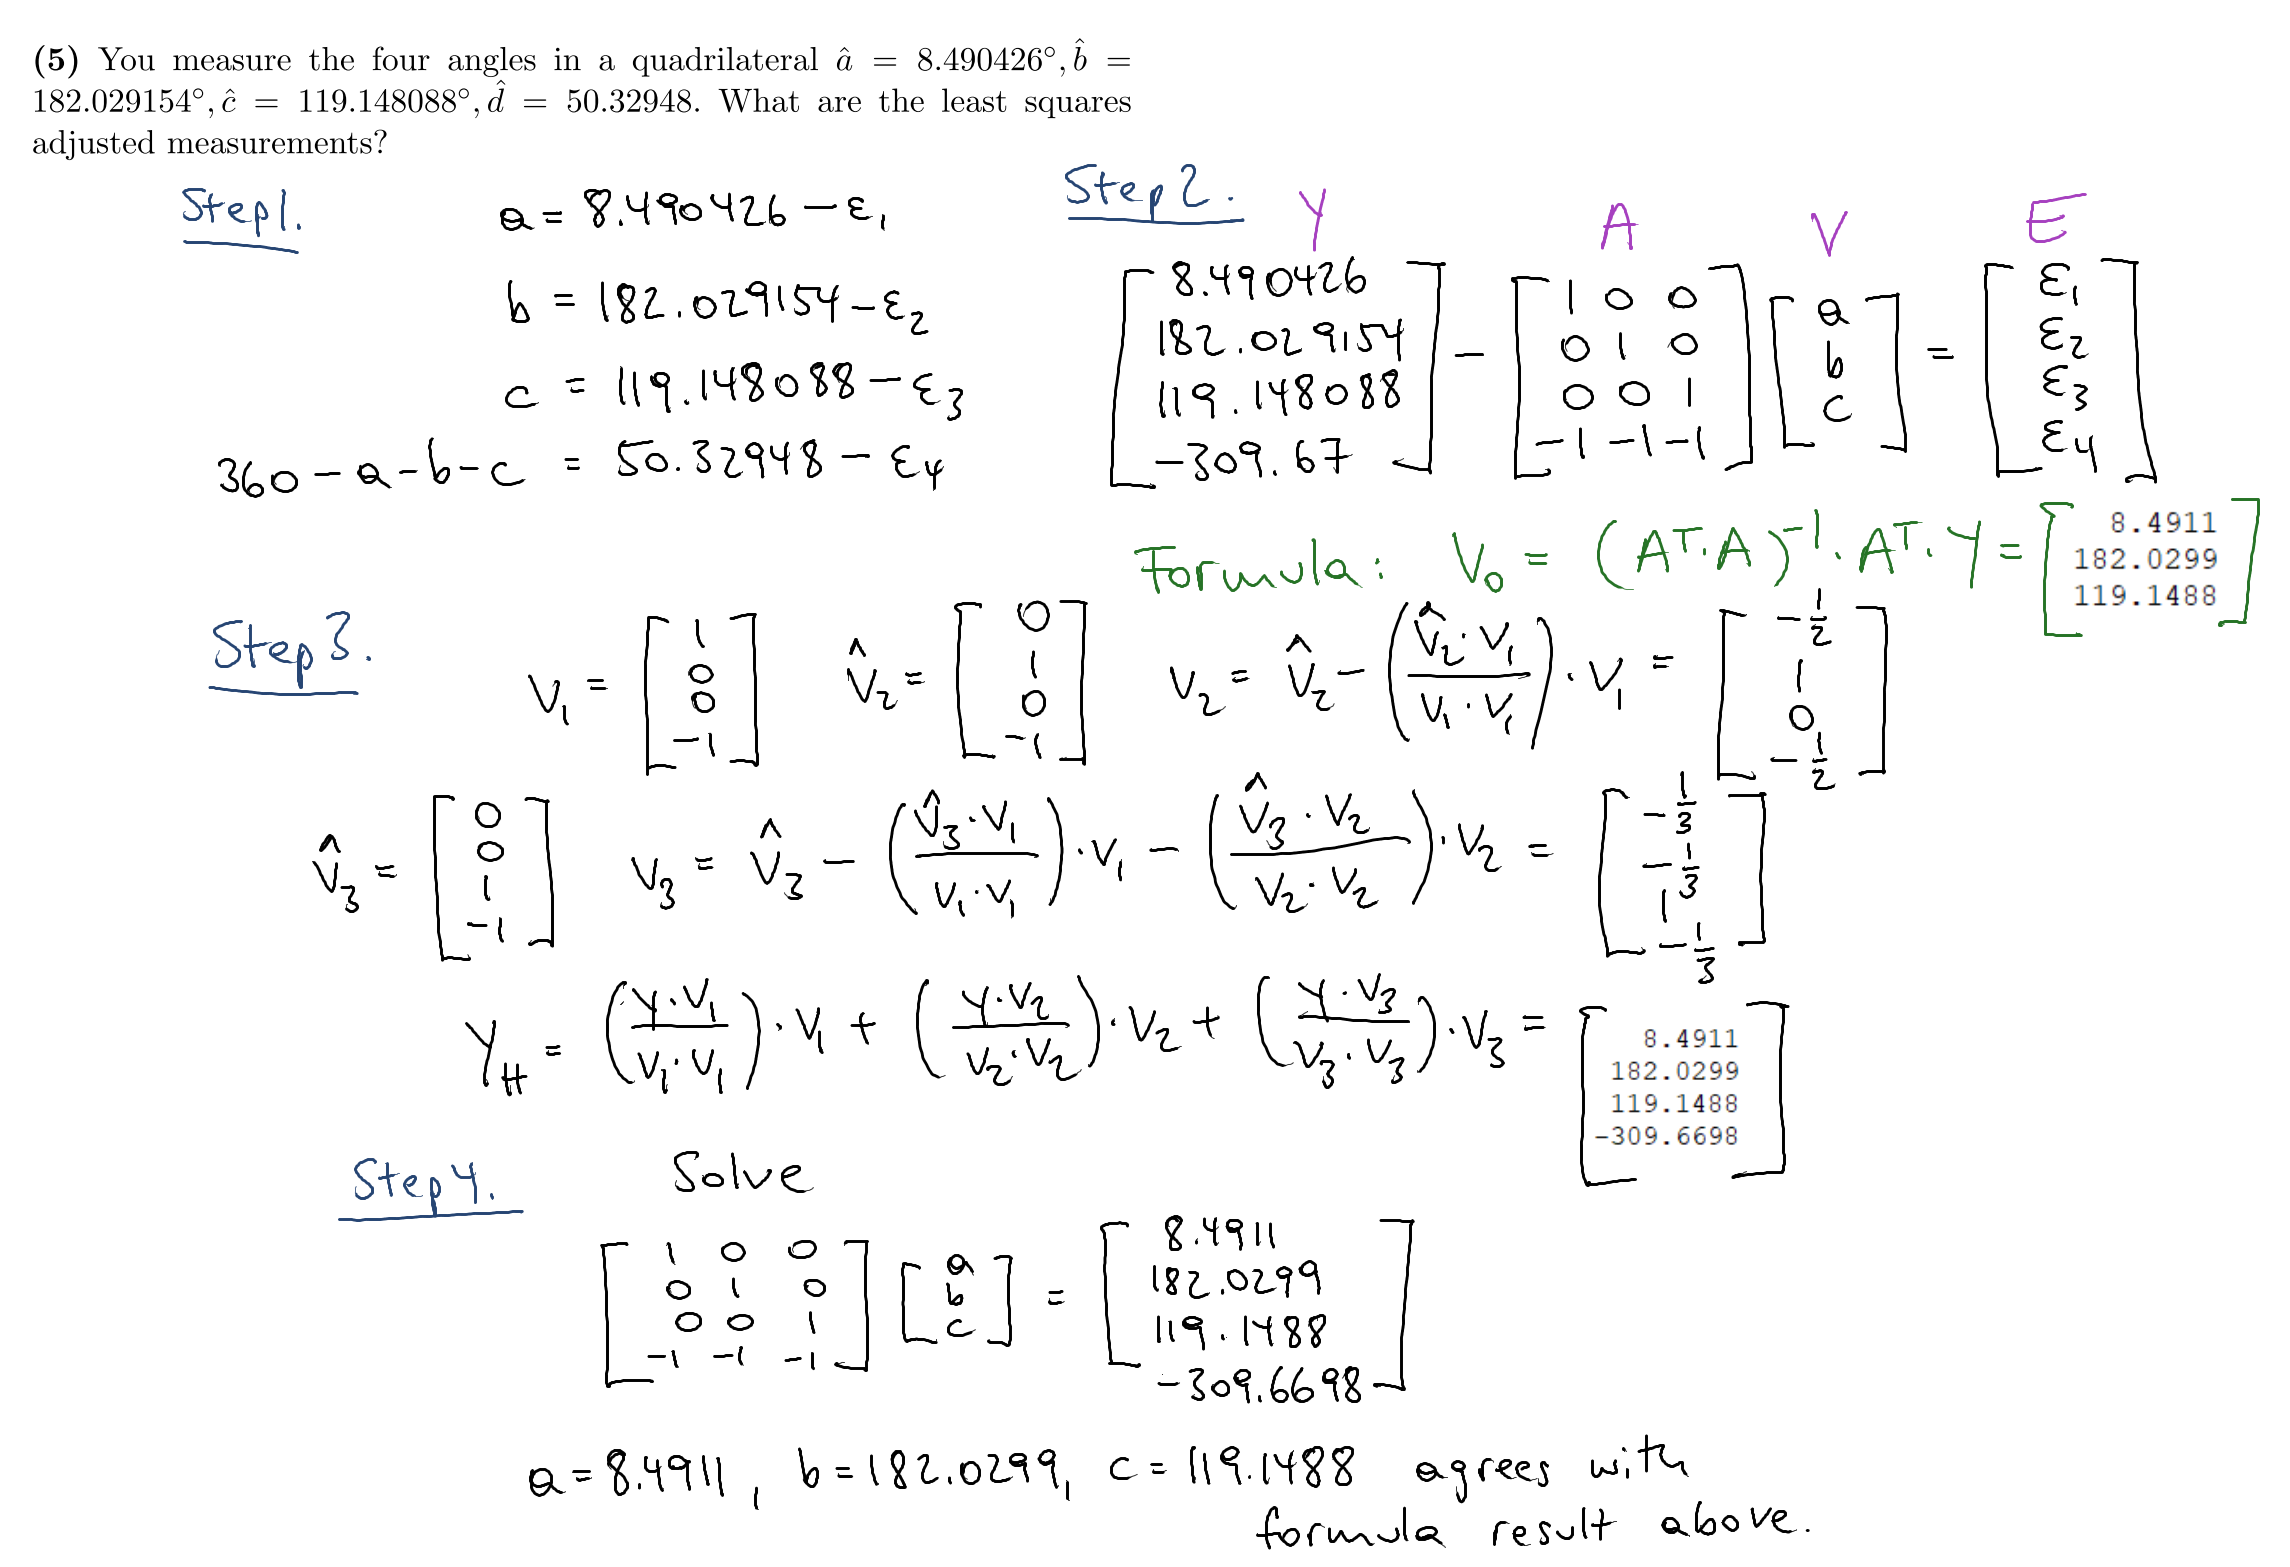 (5) You measure the four angles in a quadrilateral â = 8.490426°, b̂ =
182.029154°, ĉ = 119.148088°, d̂ = 50.32948. What are the least squares
adjusted measurements?
Step 1.
a = 8.490426 − ε₁
b = 182.029154 − ε₂
c = 119.148088 − ε₃
360 − a − b − c = 50.32948 − ε₄
Step 2.
Y A V E
[8.490426 182.029154 119.148088 −309.67] − [1 0 0; 0 1 0; 0 0 1; −1 −1 −1] [a b c] = [ε₁ ε₂ ε₃ ε₄]
Formula: V₀ = (Aᵀ·A)⁻¹·Aᵀ·Y = [8.4911 182.0299 119.1488]
Step 3.
V₁ = [1 0 0 −1] V̂₂ = [0 1 0 −1] V₂ = V̂₂ − (V̂₂·V₁ / V₁·V₁)·V₁ = [−1/2 1 0 −1/2]
V̂₃ = [0 0 1 −1] V₃ = V̂₃ − (V̂₃·V₁ / V₁·V₁)·V₁ − (V̂₃·V₂ / V₂·V₂)·V₂ = [−1/3 −1/3 1 −1/3]
Y_H = (Y·V₁ / V₁·V₁)·V₁ + (Y·V₂ / V₂·V₂)·V₂ + (Y·V₃ / V₃·V₃)·V₃ = [8.4911 182.0299 119.1488 −309.6698]
Step 4. Solve
[1 0 0; 0 1 0; 0 0 1; −1 −1 −1] [a b c] = [8.4911 182.0299 119.1488 −309.6698]
a = 8.4911, b = 182.0299, c = 119.1488 agrees with
formula result above.